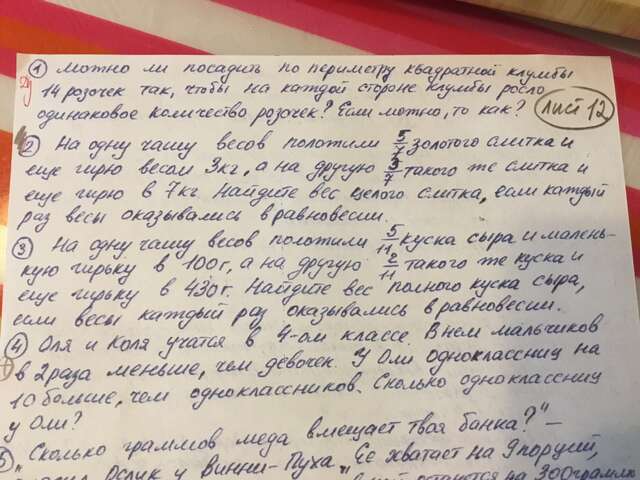 ① Можно ли посадить по периметру квадратной клумбы
14 розочек так, чтобы на каждой стороне клумбы росло
одинаковое количество розочек? Если можно, то как?
Лист 12
② На одну чашу весов положили 5/7 золотого слитка и
еще гирю весом 3кг, а на другую 3/7 такого же слитка и
еще гирю в 7кг. Найдите вес целого слитка, если каждый
раз весы оказывались в равновесии.
③ На одну чашу весов положили 5/11 куска сыра и малень-
кую гирьку в 100г, а на другую 2/11 такого же куска и
еще гирьку в 430г. Найдите вес полного куска сыра,
если весы каждый раз оказывались в равновесии.
④ Оля и Коля учатся в 4-ом классе. В нем мальчиков
в 2 раза меньше, чем девочек. У Оли одноклассниц на
10 больше, чем одноклассников. Сколько одноклассниц
у Оли?
⑤ "Сколько граммов меда вмещает твоя банка?" –
Ослик у Винни-Пуха. "Ее хватает на 9 порций,
на 300 грамм